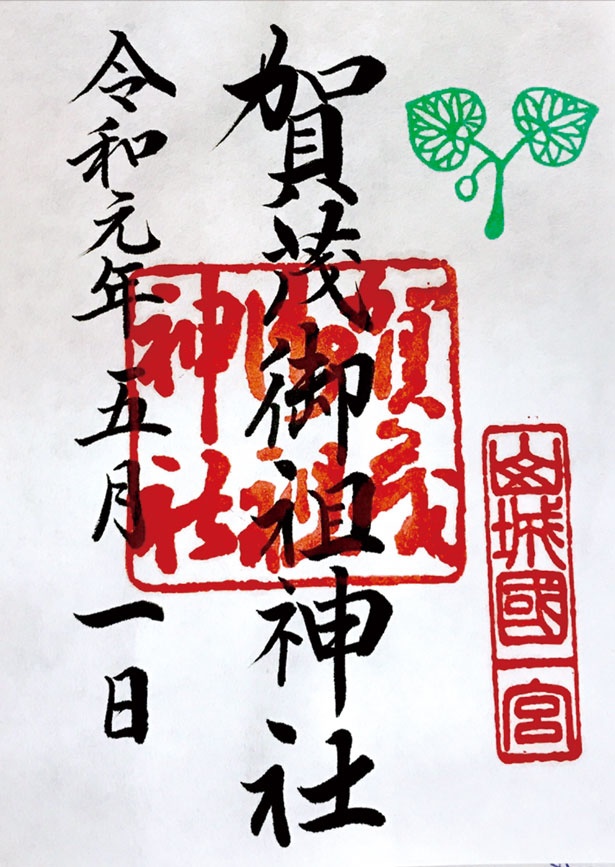 山城國一宮
賀茂御祖神社
賀茂御祖神社
令和元年五月一日